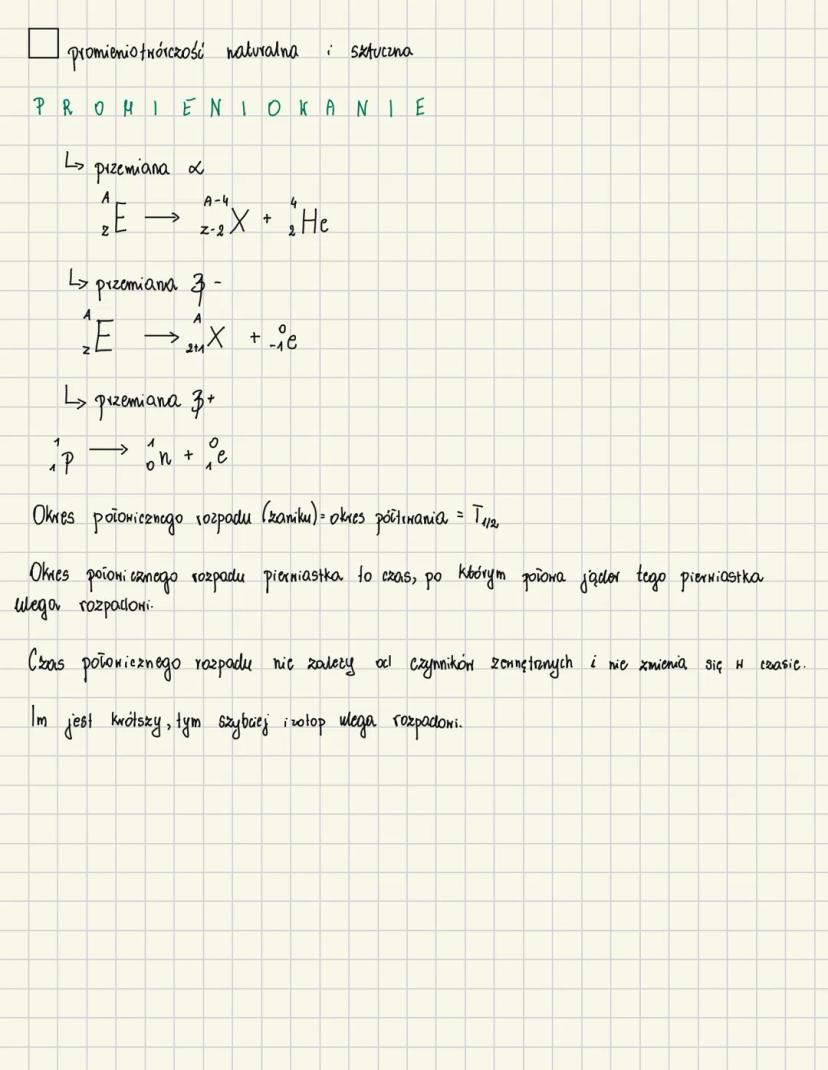 promieniotwórczość naturalna i sztuczna
PROMIENIOWANIE
↳ przemiana α
{}^{A}_{Z}E → {}^{A-4}_{Z-2}X + {}^{4}_{2}He
↳ przemiana β-
{}^{A}_{Z}E → {}^{A}_{Z+1}X + {}^{0}_{-1}e
↳ przemiana β+
{}^{1}_{1}p → {}^{1}_{0}n + {}^{0}_{1}e
Okres połowicznego rozpadu (zaniku) = okres półtrwania = T_{1/2}
Okres połowicznego rozpadu pierwiastka to czas, po którym połowa jąder tego pierwiastka
ulega rozpadowi.
Czas połowicznego rozpadu nie zależy od czynników zewnętrznych i nie zmienia się w czasie.
Im jest krótszy, tym szybciej izotop ulega rozpadowi.